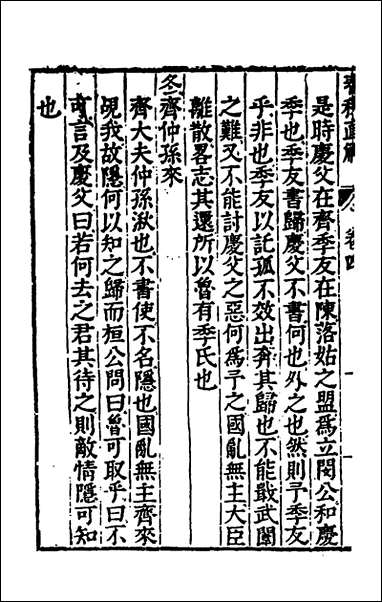 春秋直解 卷四
是時慶父在齊季友在陳落姑之盟爲立閔公和慶
季也季友書歸慶父不書何也外之也然則予季友
乎非也季友以託孤不效出奔其歸也不能戢武闈
之難又不能討慶父之惡何爲予之國亂無主大臣
離散畧志其還所以魯有季氏也
冬齊仲孫來
齊大夫仲孫湫也不書使不名隱也國亂無主齊來
覘我故隱何以知之歸而桓公問曰魯可取乎曰不
可言及慶父曰若何去之君其待之則敵情隱可知
也